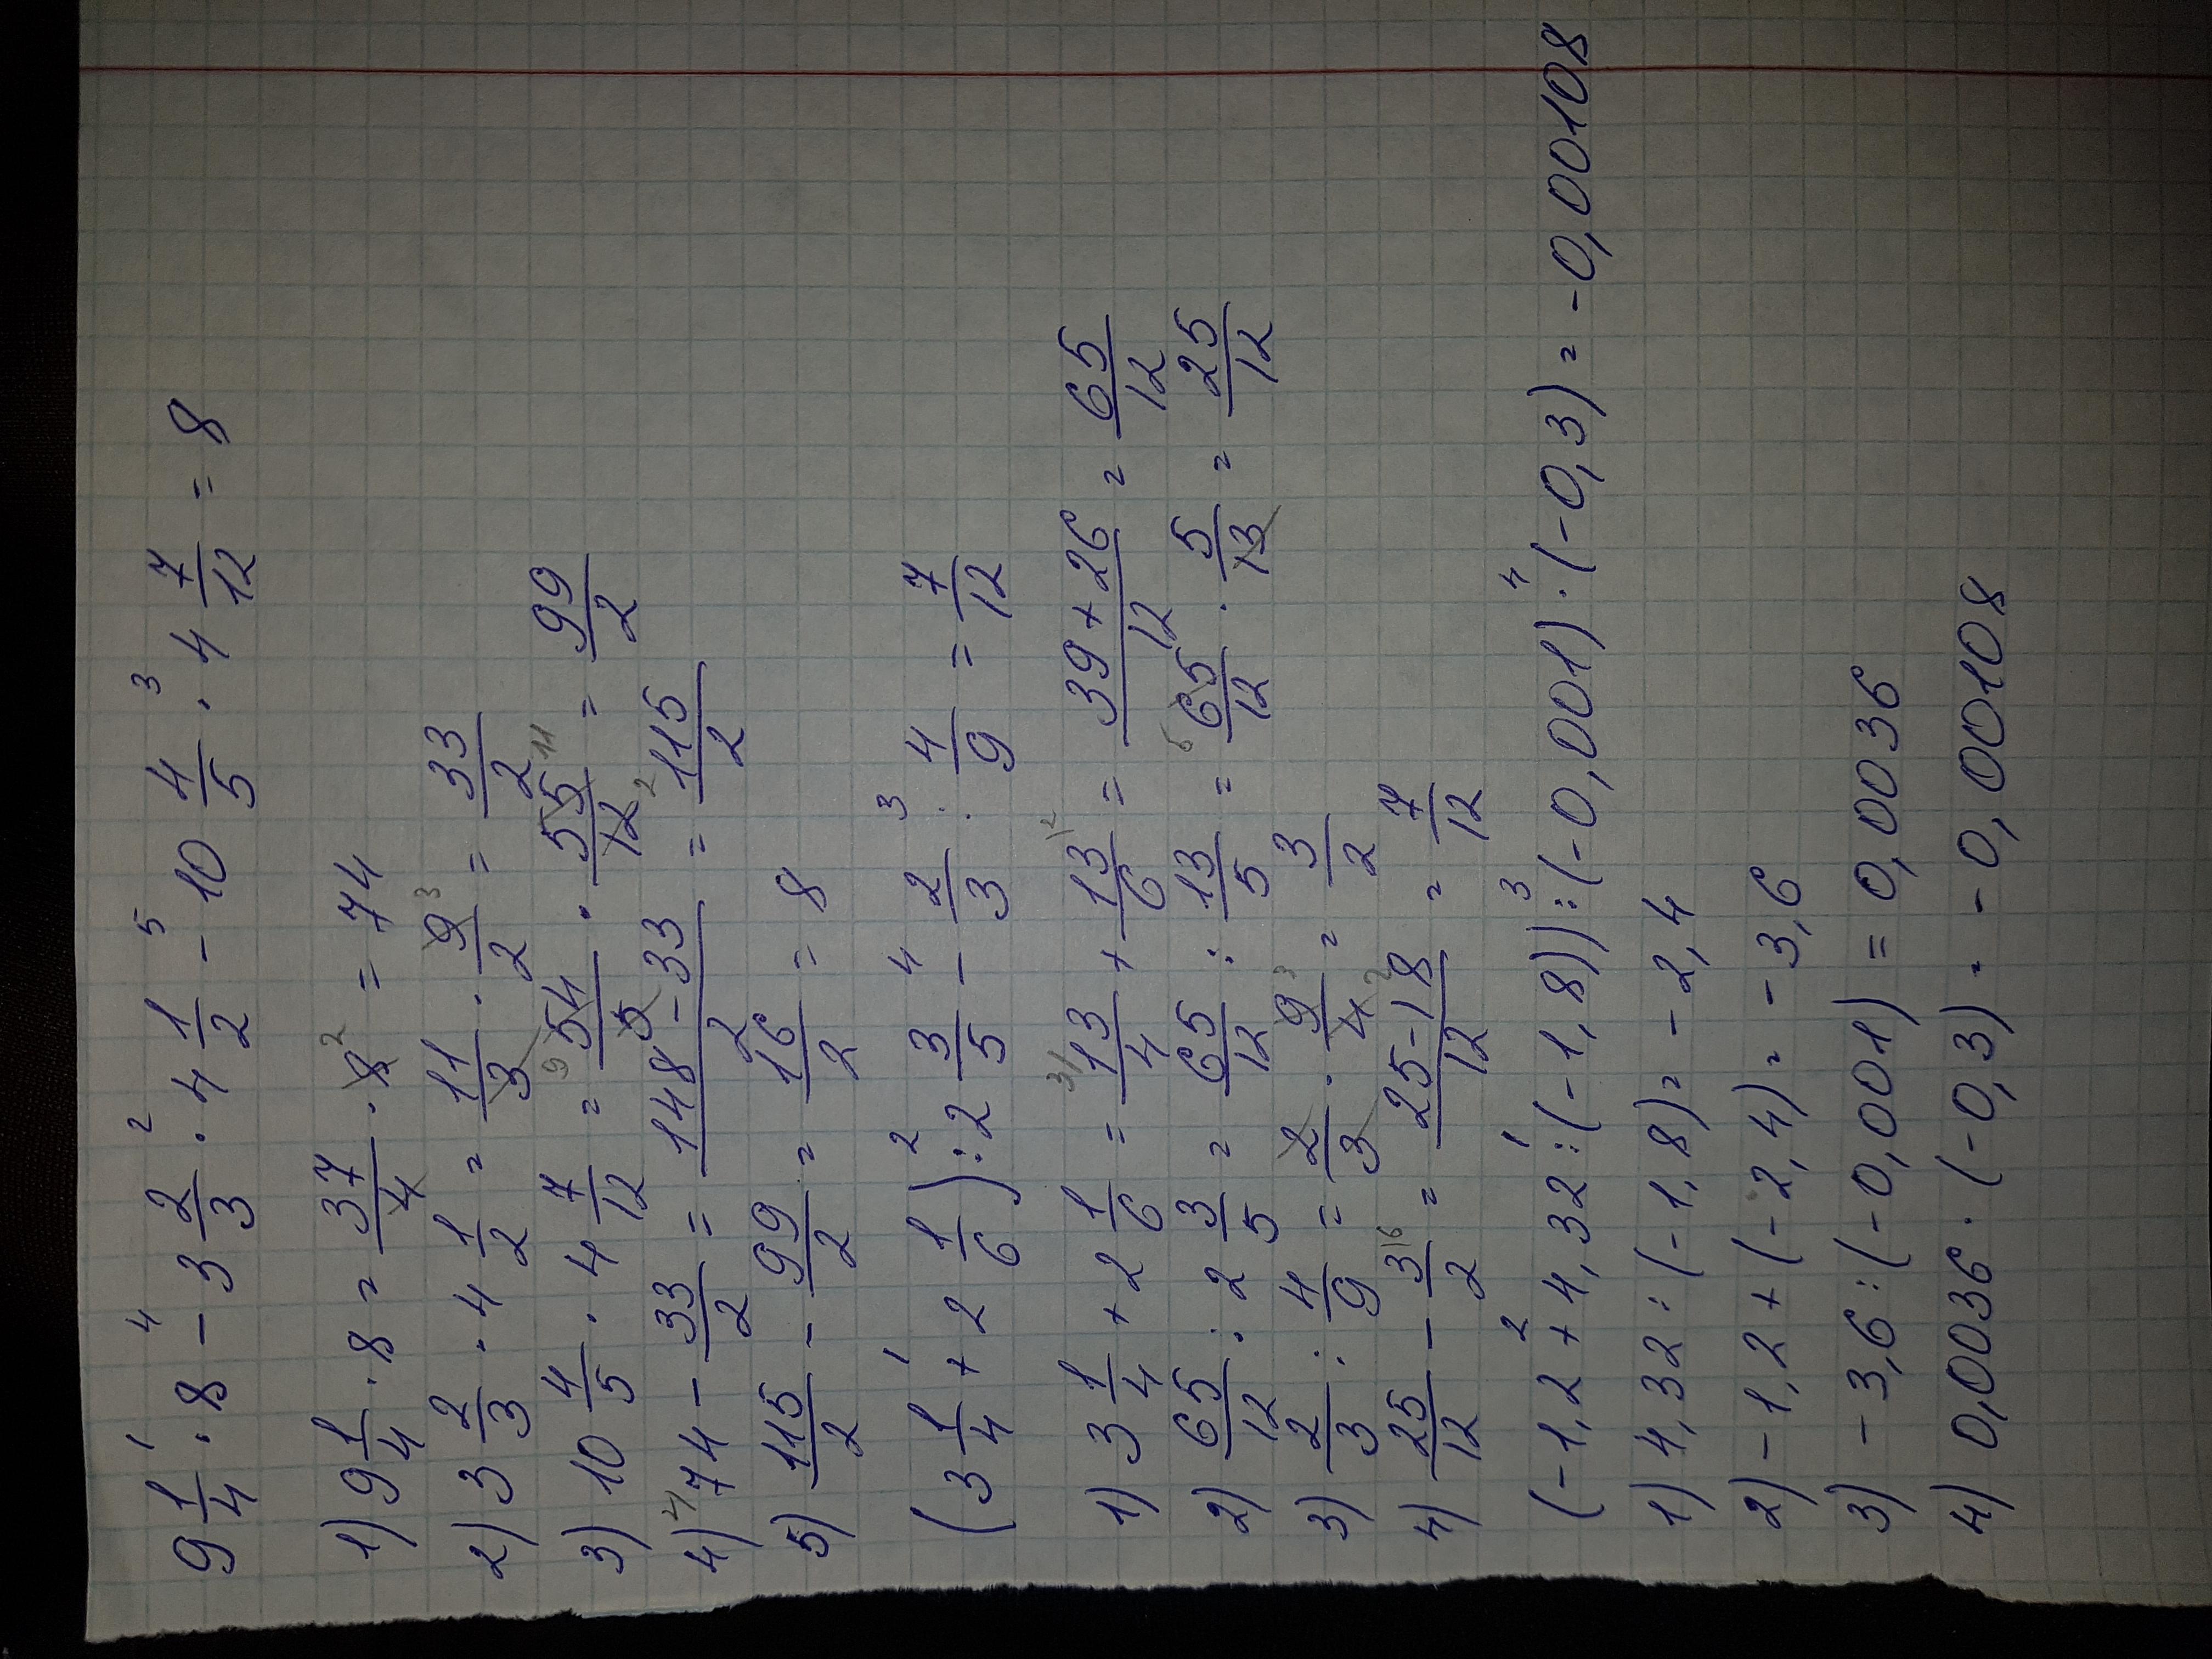 9 1/4 · 8 - 3 2/3 · 4 1/2 - 10 4/5 · 4 7/12 = 8
1) 9 1/4 · 8 = 37/4 · 8 = 74
2) 3 2/3 · 4 1/2 = 11/3 · 9/2 = 33/2
3) 10 4/5 · 4 7/12 = 54/5 · 55/12 = 99/2
4) 74 - 33/2 = 148-33/2 = 115/2
5) 115/2 - 99/2 = 16/2 = 8
(3 1/4 + 2 1/6) : 2 3/5 - 2/3 : 4/9 = 7/12
1) 3 1/4 + 2 1/6 = 13/4 + 13/6 = 39+26/12 = 65/12
2) 65/12 : 2 3/5 = 65/12 : 13/5 = 65/12 · 5/13 = 25/12
3) 2/3 : 4/9 = 2/3 · 9/4 = 3/2
4) 25/12 - 3/2 = 25-18/12 = 7/12
(-1,2 + 4,32 : (-1,8)) : (-0,001) · (-0,3) = -0,00108
1) 4,32 : (-1,8) = -2,4
2) -1,2 + (-2,4) = -3,6
3) -3,6 : (-0,001) = 0,0036
4) 0,0036 · (-0,3) = -0,00108